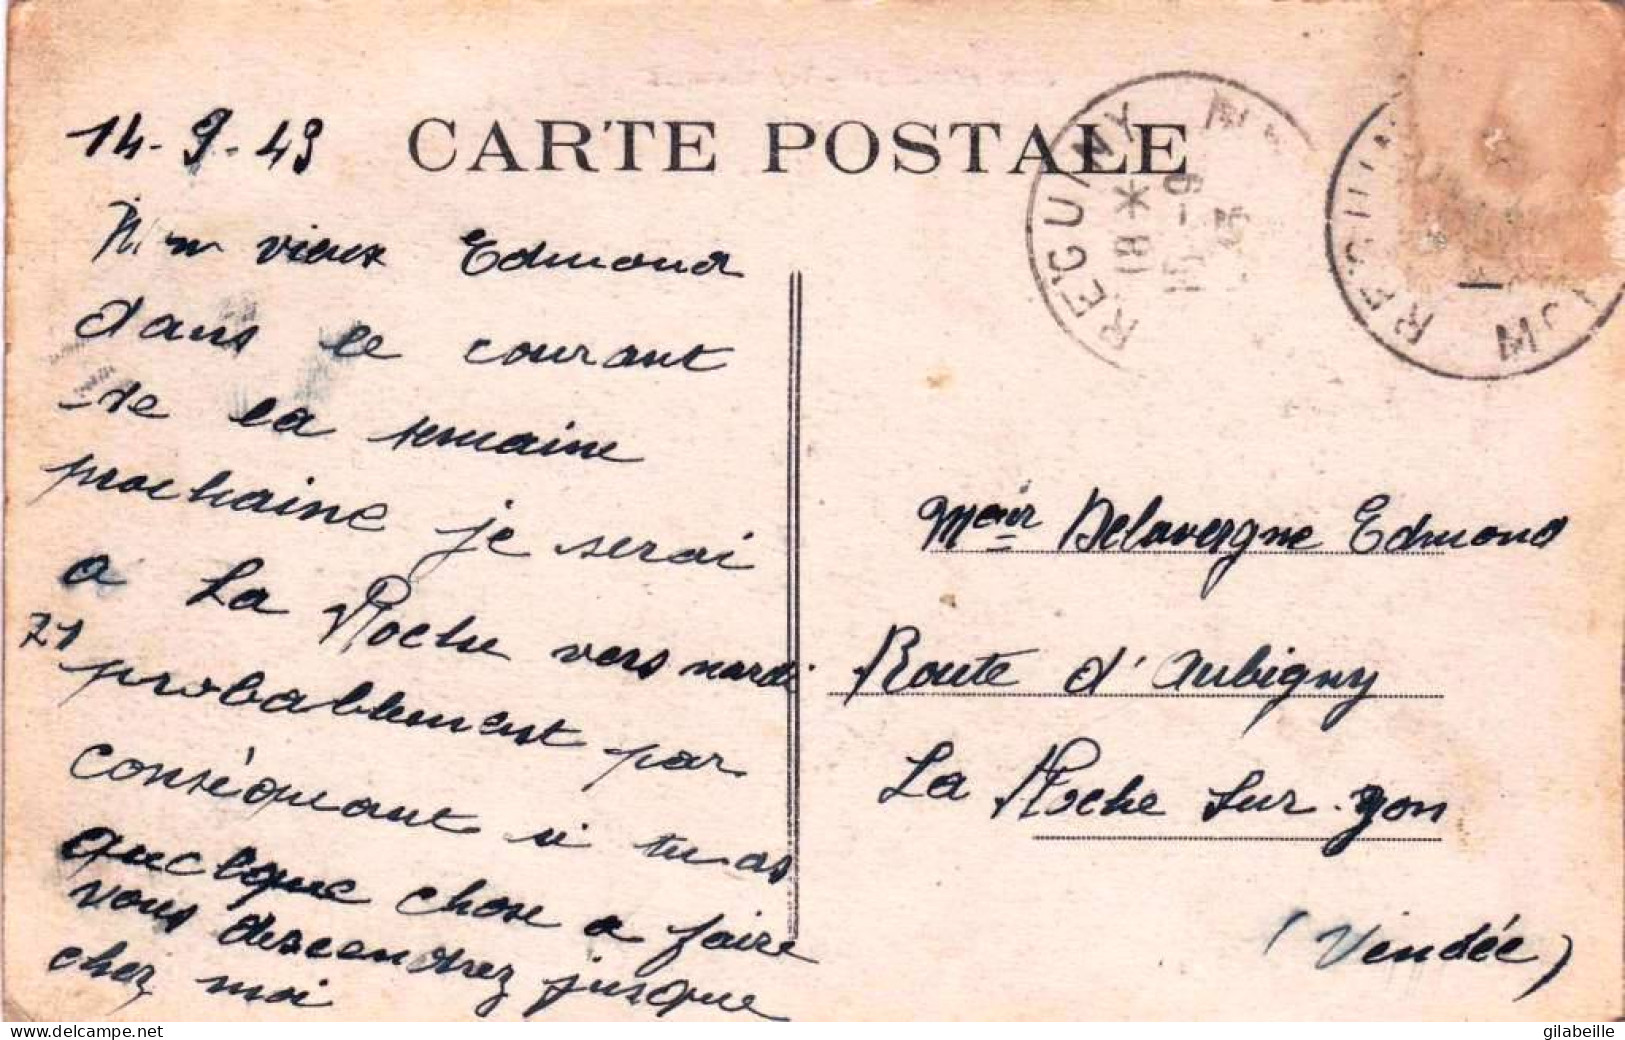 CARTE POSTALE
14-9-43
Mon vieux Edmond
dans le courant
de la semaine
prochaine je serai
a La Roche vers mardi
21
probablement par
conséquant si tu as
quelque chose a faire
vous descendrez jusque
chez moi
REGUINY
18 *
15 - 9
43
REGUINY
Delavergne Edmond
Route d'Aubigny
La Roche sur-yon
(Vendée)
gilabeille